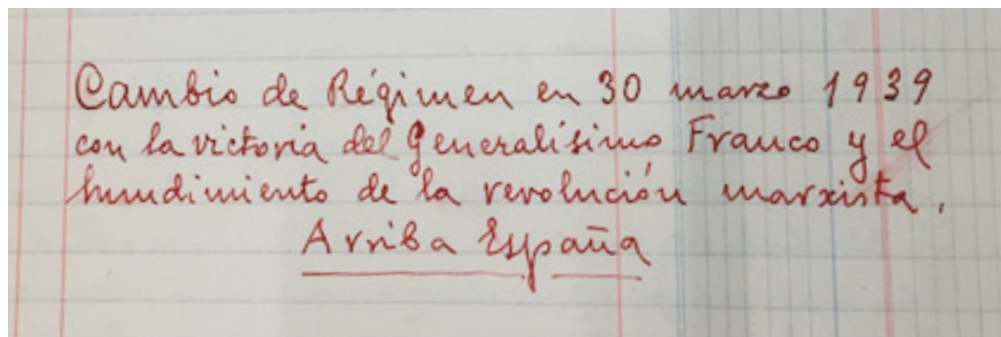 Cambio de Régimen en 30 marzo 1939
con la victoria del Generalísimo Franco y el
hundimiento de la revolución marxista.
Arriba España